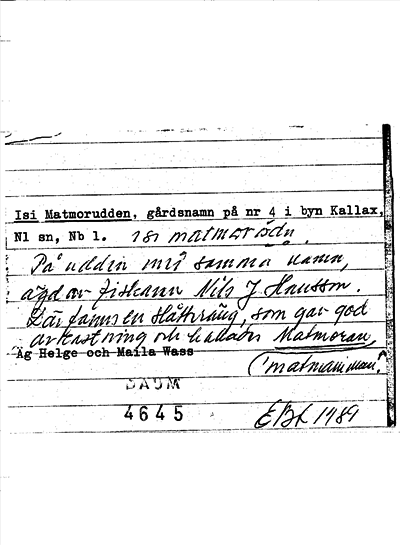 Isi Matmorudden, gårdsnamn på nr 4 i byn Kallax,
Nl sn, Nb l. isi matmorödn
På udden med samma namn,
ägd av fiskaren Nils J Hansson.
Där fanns en slåtteräng, som gav god
avkastning och kallades Matmoran,
Äg Helge och Maila Wass
("matmamman".
DAUM
4645
EBL 1989